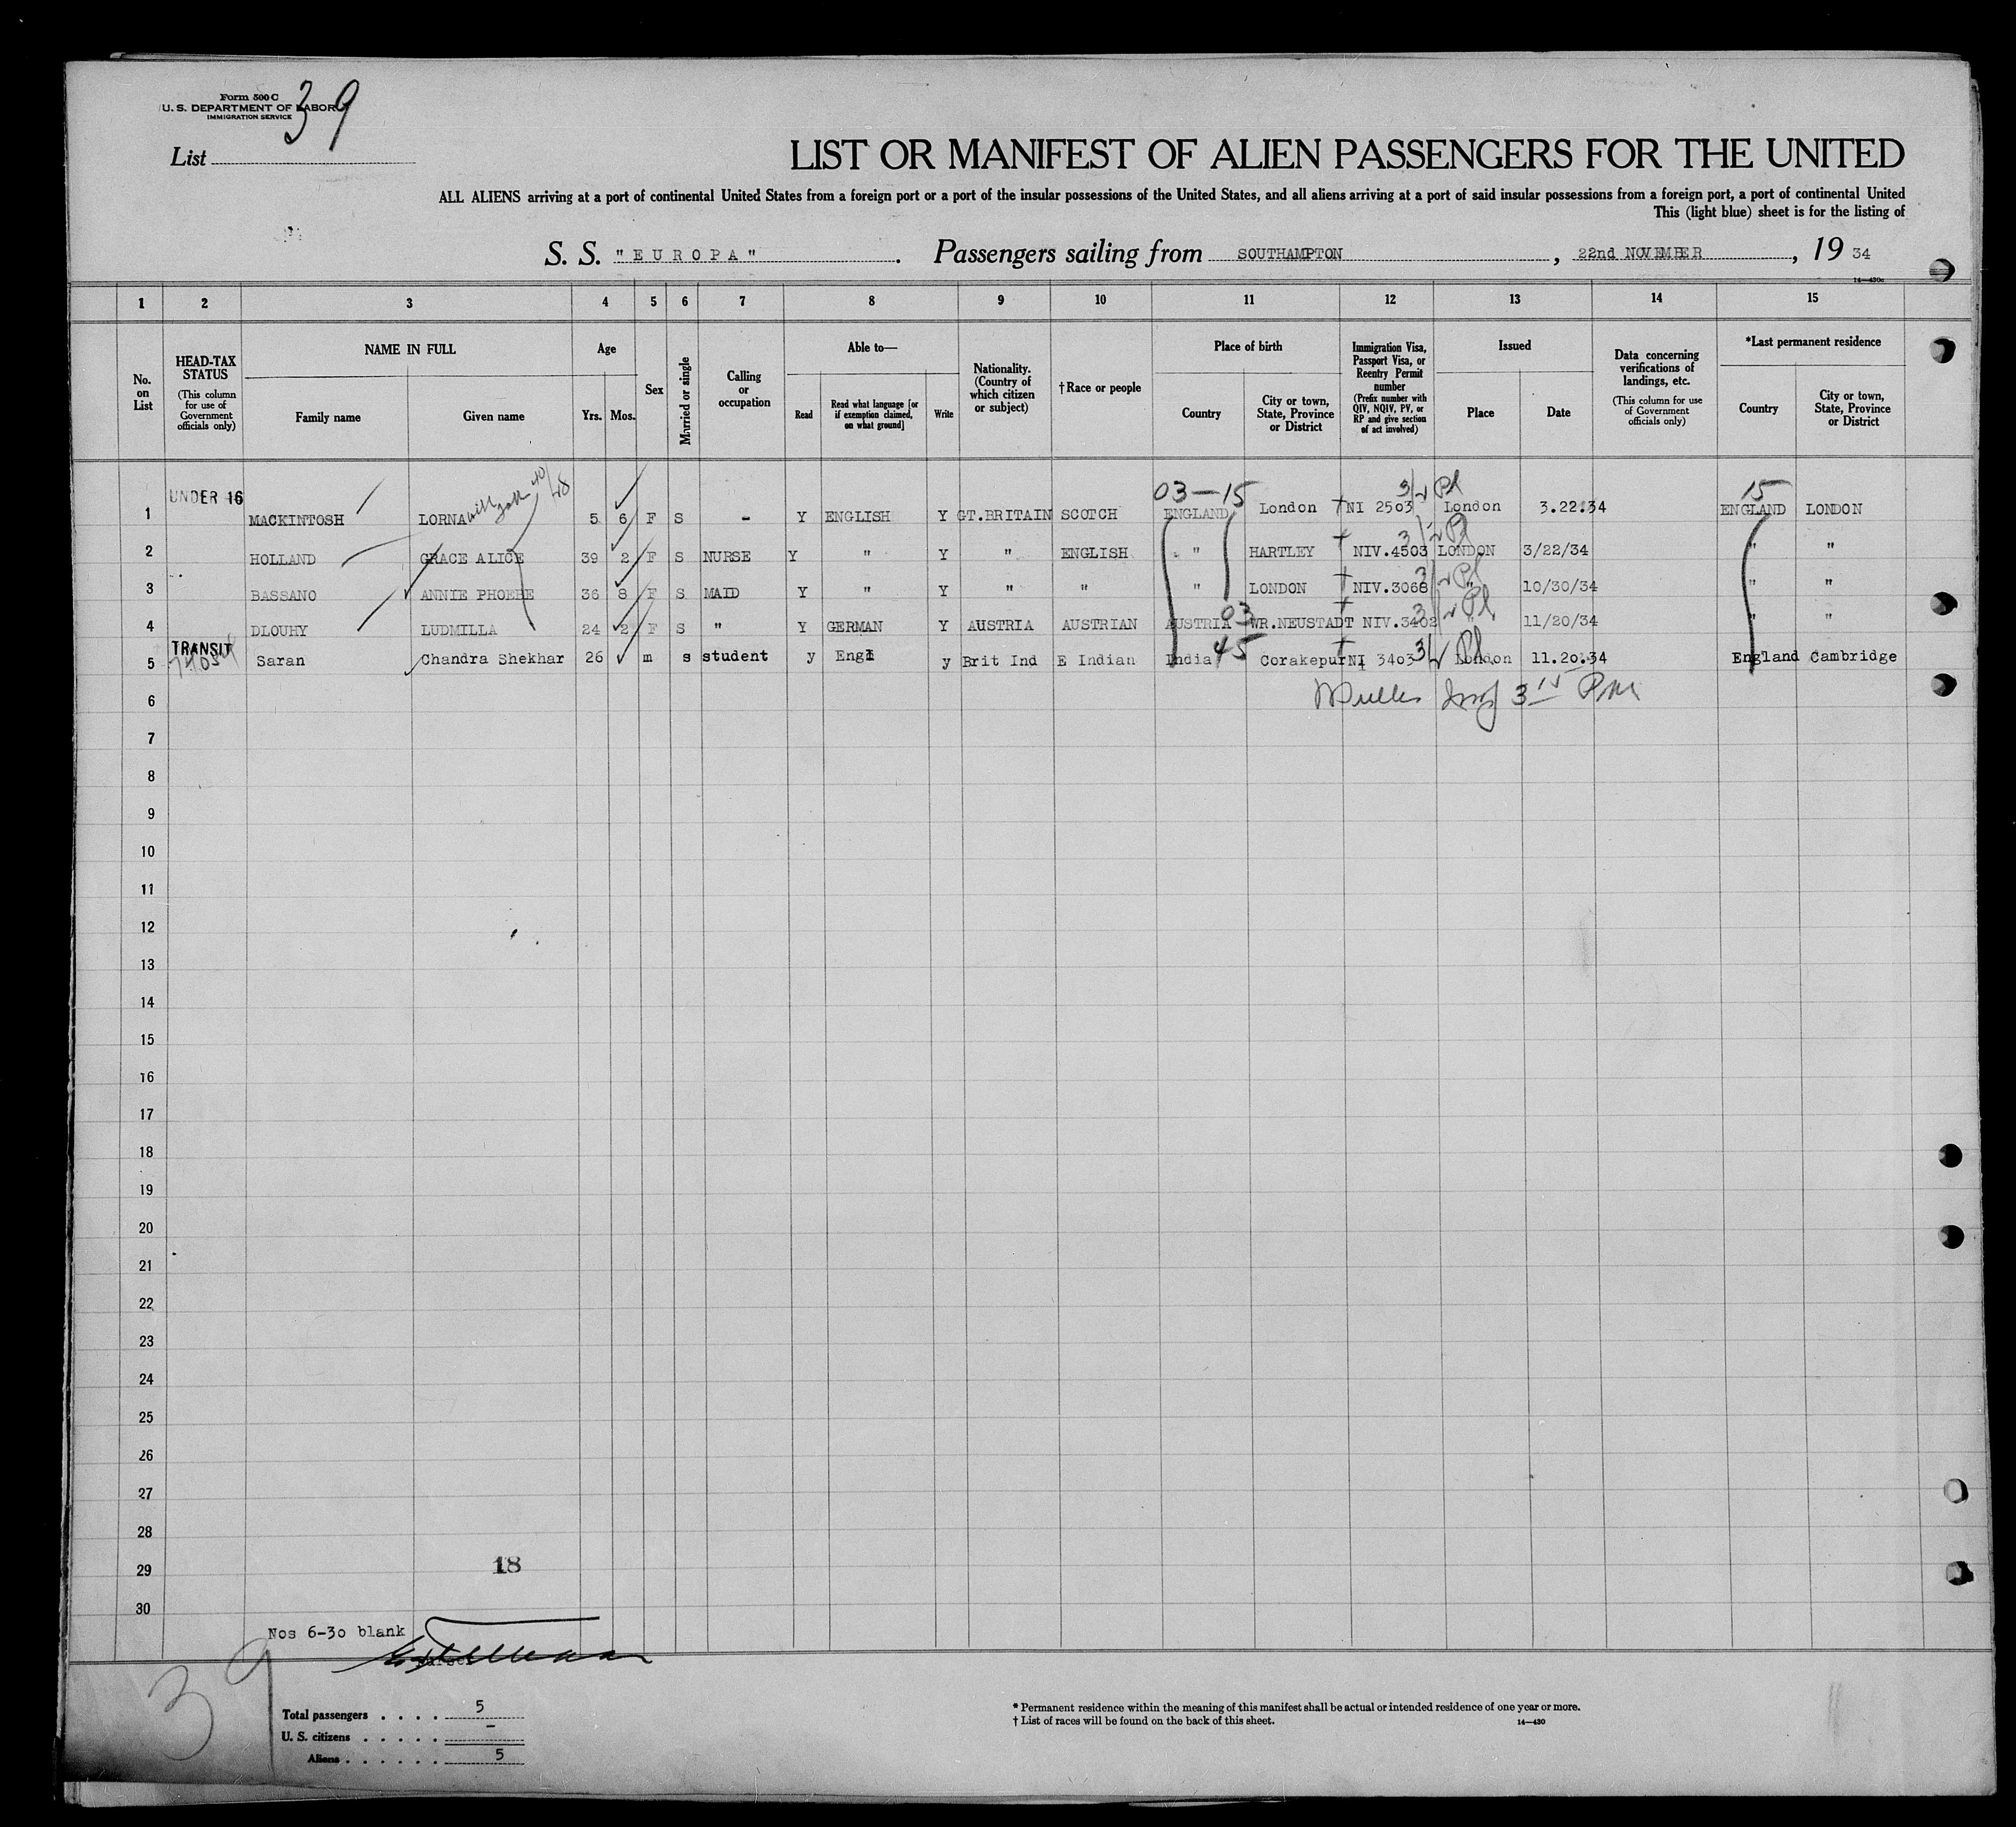 Form 500 C
U. S. DEPARTMENT OF LABOR
IMMIGRATION SERVICE
39
List
LIST OR MANIFEST OF ALIEN PASSENGERS FOR THE UNITED
ALL ALIENS arriving at a port of continental United States from a foreign port or a port of the insular possessions of the United States, and all aliens arriving at a port of said insular possessions from a foreign port, a port of continental United
This (light blue) sheet is for the listing of
S. S. "EUROPA". Passengers sailing from SOUTHAMPTON, 22nd NOVEMBER, 19 34
14—430c
1 2 3 4 5 6 7 8 9 10 11 12 13 14 15
No. on List
HEAD-TAX STATUS (This column for use of Government officials only)
NAME IN FULL Family name Given name
Age Yrs. Mos.
Sex
Married or single
Calling or occupation
Able to— Read Read what language [or if exemption claimed, on what ground] Write
Nationality. (Country of which citizen or subject)
†Race or people
Place of birth Country City or town, State, Province or District
Immigration Visa, Passport Visa, or Reentry Permit number (Prefix number with QIV, NQIV, PV, or RP and give section of act involved)
Issued Place Date
Data concerning verifications of landings, etc. (This column for use of Government officials only)
*Last permanent residence Country City or town, State, Province or District
03-15 3/2 Pl 15
1 UNDER 16 MACKINTOSH LORNA 5 6 F S - Y ENGLISH Y GT.BRITAIN SCOTCH ENGLAND London NI 2503 London 3.22.34 ENGLAND LONDON
2 HOLLAND GRACE ALICE 39 2 F S NURSE Y " Y " ENGLISH " HARTLEY NIV.4503 LONDON 3/22/34 " "
3 BASSANO ANNIE PHOEBE 36 8 F S MAID Y " Y " " " LONDON NIV.3068 " 10/30/34 " "
4 DLOUHY LUDMILLA 24 2 F S " Y GERMAN Y AUSTRIA AUSTRIAN AUSTRIA 03 WR.NEUSTADT NIV.3402 " 11/20/34 " "
5 TRANSIT Saran Chandra Shekhar 26 m s student y Engl y Brit Ind E Indian India 45 Corakepur NI 3403 London 11.20.34 England Cambridge
6
7
8
9
10
11
12
13
14
15
16
17
18
19
20
21
22
23
24
25
26
27
28
29 18
30
Nos 6-30 blank
39
Total passengers . . . . 5
U. S. citizens . . . . . -
Aliens . . . . . . 5
* Permanent residence within the meaning of this manifest shall be actual or intended residence of one year or more.
† List of races will be found on the back of this sheet.
14—430